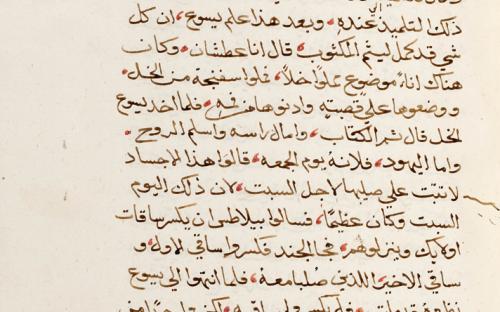 ذلك التلميذ عنده، وبعد هذا علم يسوع، ان كل
شي قد كمل ليتم المكتوب قال انا عطشان، وكان
هناك اناءً موضوع مملوا خلاً، فملوا سفنجة من الخل.
ووضعوها علي قصبته وادنوها من فيه، فلما اخد يسوع
الخل قال تم الكتاب، وامال راسه واسلم الروح.
واما اليهود، فلانه يوم الجمعه، قالوا هذا الاجساد
لا تتبت علي صليبها لاجل السبت، لان ذلك اليوم
السبت وكان عظيمًا، فسالوا بيلاطس ان يكسر ساقات
اولايك وينزلوهم، فجا الجند فكسروا ساقي الاول، و
ساقي الاخير اللذين صُلبا معهُ، فلما انتهوا الي يسوع